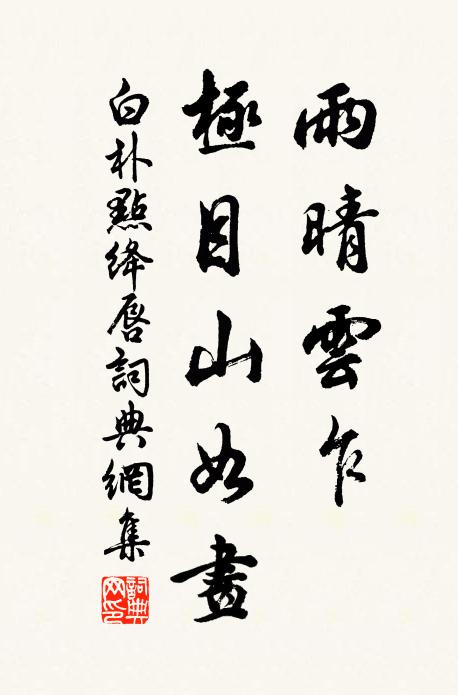 雨晴雲乍
極目山如畫
白朴點絳唇詞典網集
詞典網印